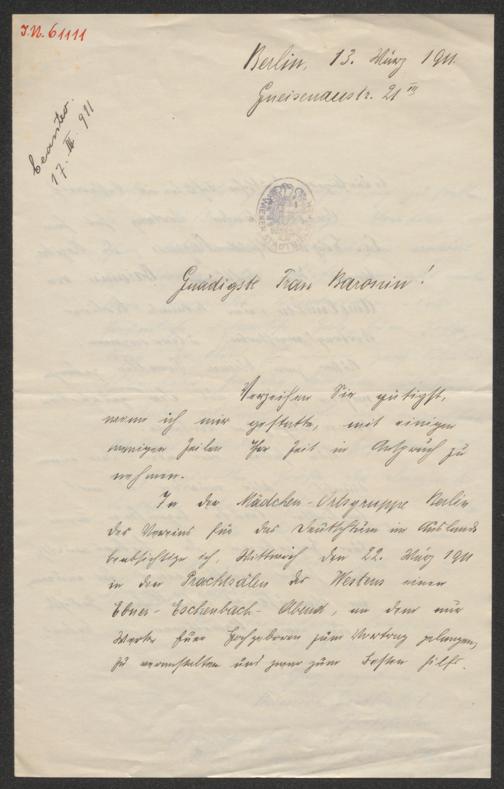 I.N. 61111
Berlin, 13. März 1911.
Gneisenaustr. 21 III
Beantw.
17. III. 911
Gnädigste Frau Baronin!
Verzeihen Sie gütigst,
wenn ich mir gestatte, mit einigen
wenigen Zeilen Ihre Zeit in Anspruch zu
nehmen.
In der Mädchen-Ortsgruppe Berlin
des Vereins für das Deutschtum im Auslande
beabsichtige ich, Mittwoch den 22. März 1911
in den Prachtsälen des Westens einen
Ebner-Eschenbach-Abend, an dem nur
Werke Euer Hochgeboren zum Vortrag gelangen,
zu veranstalten und zwar zum Besten hilfs-